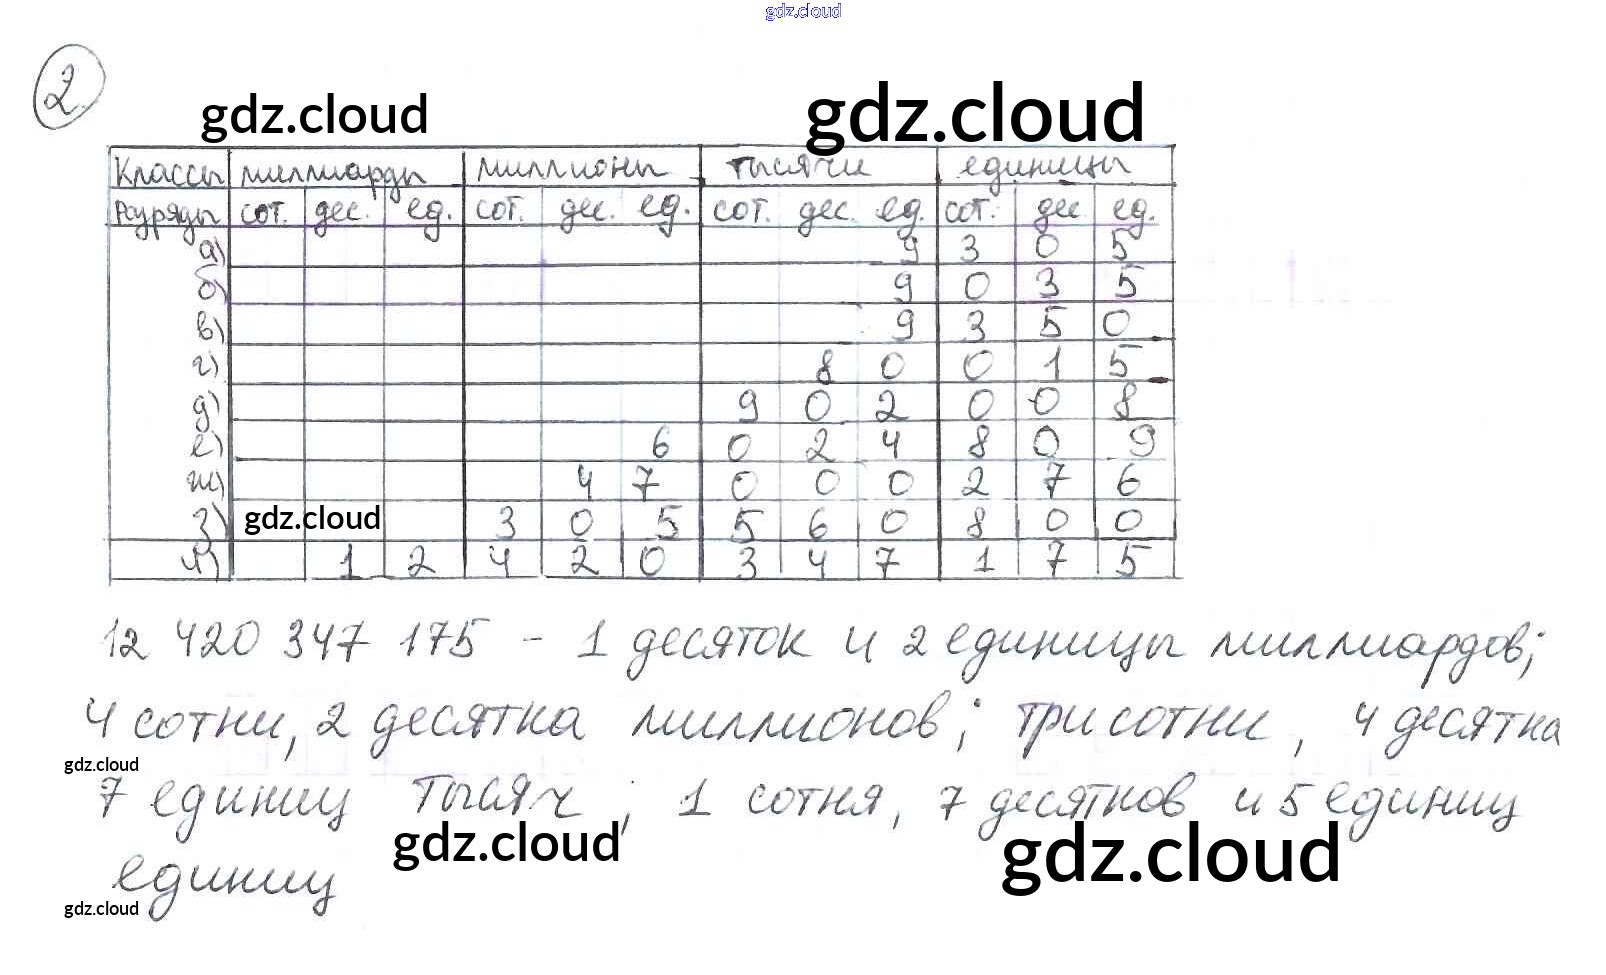 gdz.cloud
2
gdz.cloud gdz.cloud
Классы миллиарды миллионы тысячи единицы
Разряды сот. дес. ед. сот. дес. ед. сот. дес. ед. сот. дес ед.
а) 9 3 0 5
б) 9 0 3 5
в) 9 3 5 0
г) 8 0 0 1 5
д) 9 0 2 0 0 8
е) 6 0 2 4 8 0 9
ж) 4 7 0 0 0 2 7 6
з) gdz.cloud 3 0 5 5 6 0 8 0 0
и) 1 2 4 2 0 3 4 7 1 7 5
12 420 347 175 - 1 десяток и 2 единицы миллиардов;
4 сотни, 2 десятка миллионов; три сотни, 4 десятка
gdz.cloud
7 единиц тысяч; 1 сотня, 7 десятков и 5 единиц
gdz.cloud gdz.cloud
единиц
gdz.cloud